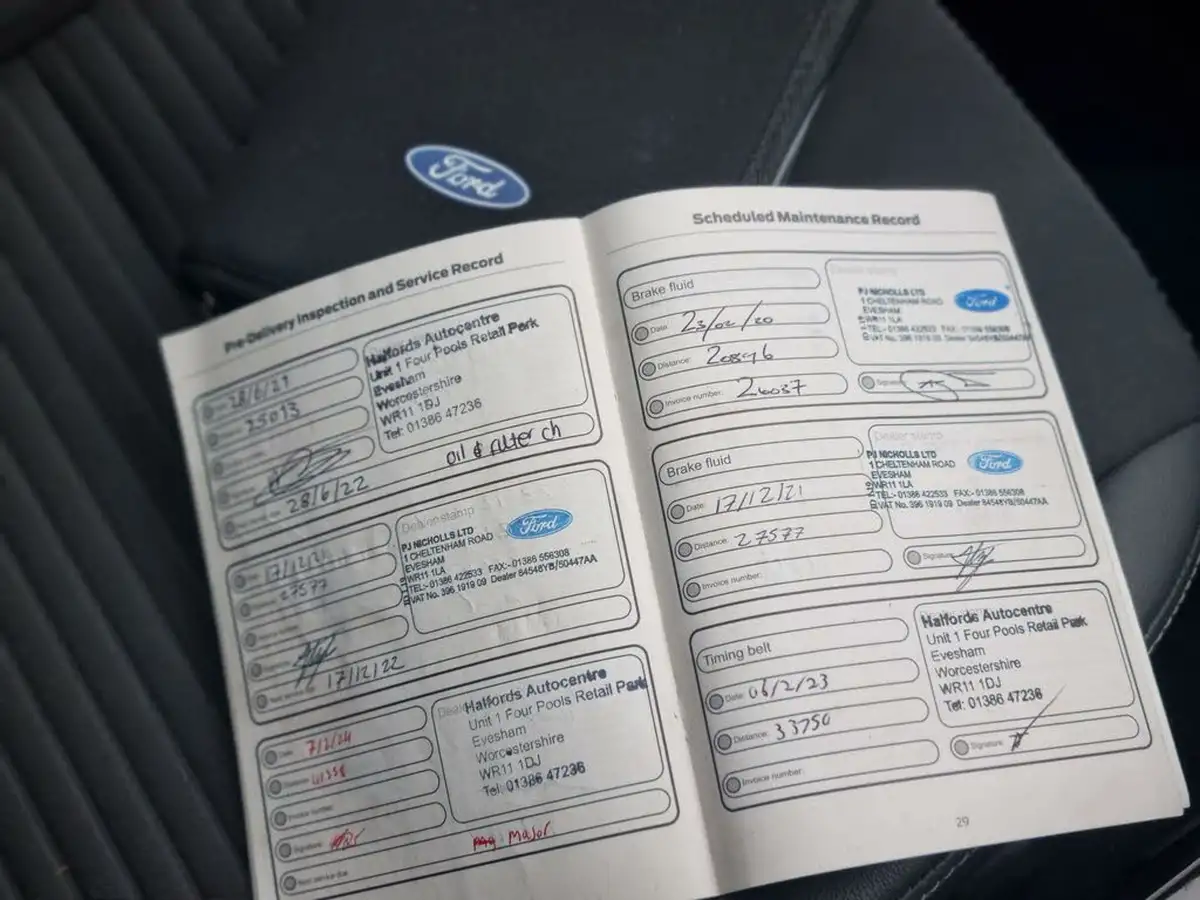 Ford
Pre-Delivery Inspection and Service Record
28/6/21
25013
28/6/22
Halfords Autocentre
Unit 1 Four Pools Retail Park
Evesham
Worcestershire
WR11 1DJ
Tel: 01386 47236
oil & filter ch
17/12/21
27577
17/12/22
Dealer stamp
Ford
PJ NICHOLLS LTD
1 CHELTENHAM ROAD
EVESHAM
WR11 1LA
TEL:- 01386 422533 FAX:- 01386 556308
VAT No. 396 1919 09 Dealer 84548YB/50447AA
Date: 7/2/24
Distance:
Invoice number:
Signature:
Next service due
Halfords Autocentre
Unit 1 Four Pools Retail Park
Evesham
Worcestershire
WR11 1DJ
Tel: 01386 47236
Major
Scheduled Maintenance Record
Brake fluid
Date: 23/02/20
Distance: 20896
Invoice number: 26037
Dealer stamp
Ford
PJ NICHOLLS LTD
1 CHELTENHAM ROAD
EVESHAM
WR11 1LA
TEL:- 01386 422533 FAX:- 01386 556308
VAT No. 396 1919 09 Dealer 84548YB/50447AA
Signature:
Brake fluid
Date: 17/12/21
Distance: 27577
Invoice number:
Dealer stamp
Ford
PJ NICHOLLS LTD
1 CHELTENHAM ROAD
EVESHAM
WR11 1LA
TEL:- 01386 422533 FAX:- 01386 556308
VAT No. 396 1919 09 Dealer 84548YB/50447AA
Signature:
Timing belt
Date: 06/2/23
Distance: 33750
Invoice number:
Halfords Autocentre
Unit 1 Four Pools Retail Park
Evesham
Worcestershire
WR11 1DJ
Tel: 01386 47236
Signature:
29